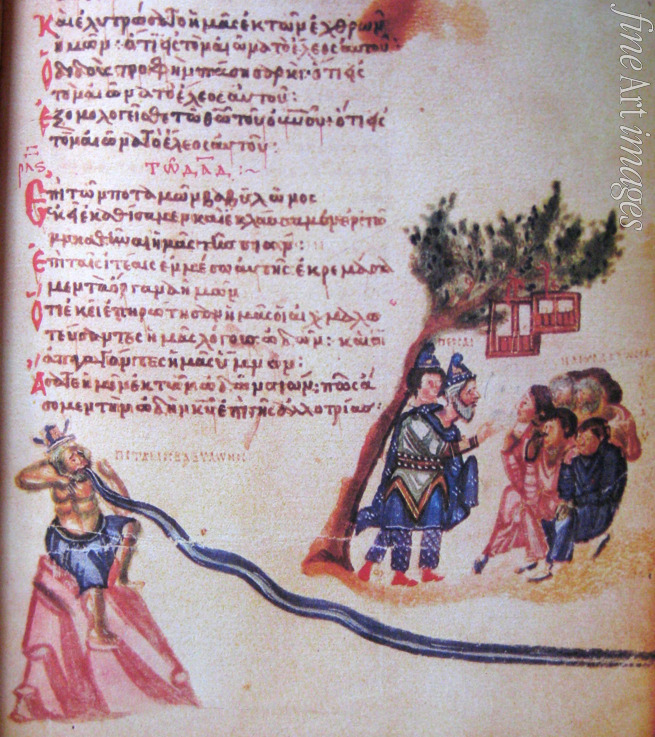 Καὶ ἐλυτρώσατο ἡμᾶς ἐκ τῶν ἐχθρῶν
ἡμῶν· ὅτι εἰς τὸν αἰῶνα τὸ ἔλεος αὐτοῦ·
Ὁ διδοὺς τροφὴν πάσῃ σαρκί· ὅτι εἰς
τὸν αἰῶνα τὸ ἔλεος αὐτοῦ:
Ἐξομολογεῖσθε τῶ θῶ τοῦ οὐνοῦ· ὅτι εἰς
τὸν αἰῶνα τὸ ἔλεος αὐτοῦ:
τῶ δαδ :~
Ἐπὶ τῶν ποταμῶν βαβυλῶνος
ἐκεῖ ἐκαθίσαμεν καὶ ἐκλαύσαμεν· ἐν τῶ
μνησθῆναι ἡμᾶς τῆς σιών:
Ἐπὶ ταῖς ἰτέαις ἐν μέσω αὐτῆς ἐκρεμάσα
μεν τὰ ὄργανα ἡμῶν
Ὅτι ἐκεῖ ἐπηρώτησαν ἡμᾶς οἱ αἰχμαλω
τεύσαντες ἡμᾶς λόγους ὠδῶν· καὶ οἱ
ἀπαγαγόντες ἡμᾶς ὕμνον:
Ἄσατε ἡμῖν ἐκ τῶν ὠδῶν σιών· πῶς ἄ
σομεν τὴν ὠδὴν κυ ἐπὶ γῆς ἀλλοτρίας:
ΠΕΡΣΑΙ
fine Art images